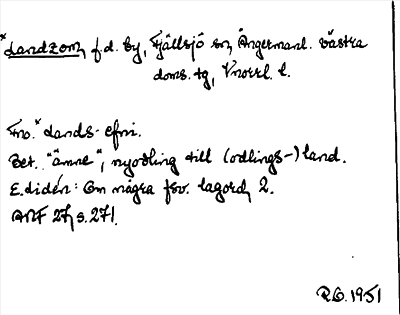 *Landzom, f.d. by, Fjällsjö sn, Ångermanl. västra
doms. tg, Vnorrl. l.
Fno. *Lands- efni.
Bet. "ämne", nyodling till (odlings-)land.
E. Lidén: Om några fsv. lagord, 2.
ANF 27, s. 271.
R.O. 1951